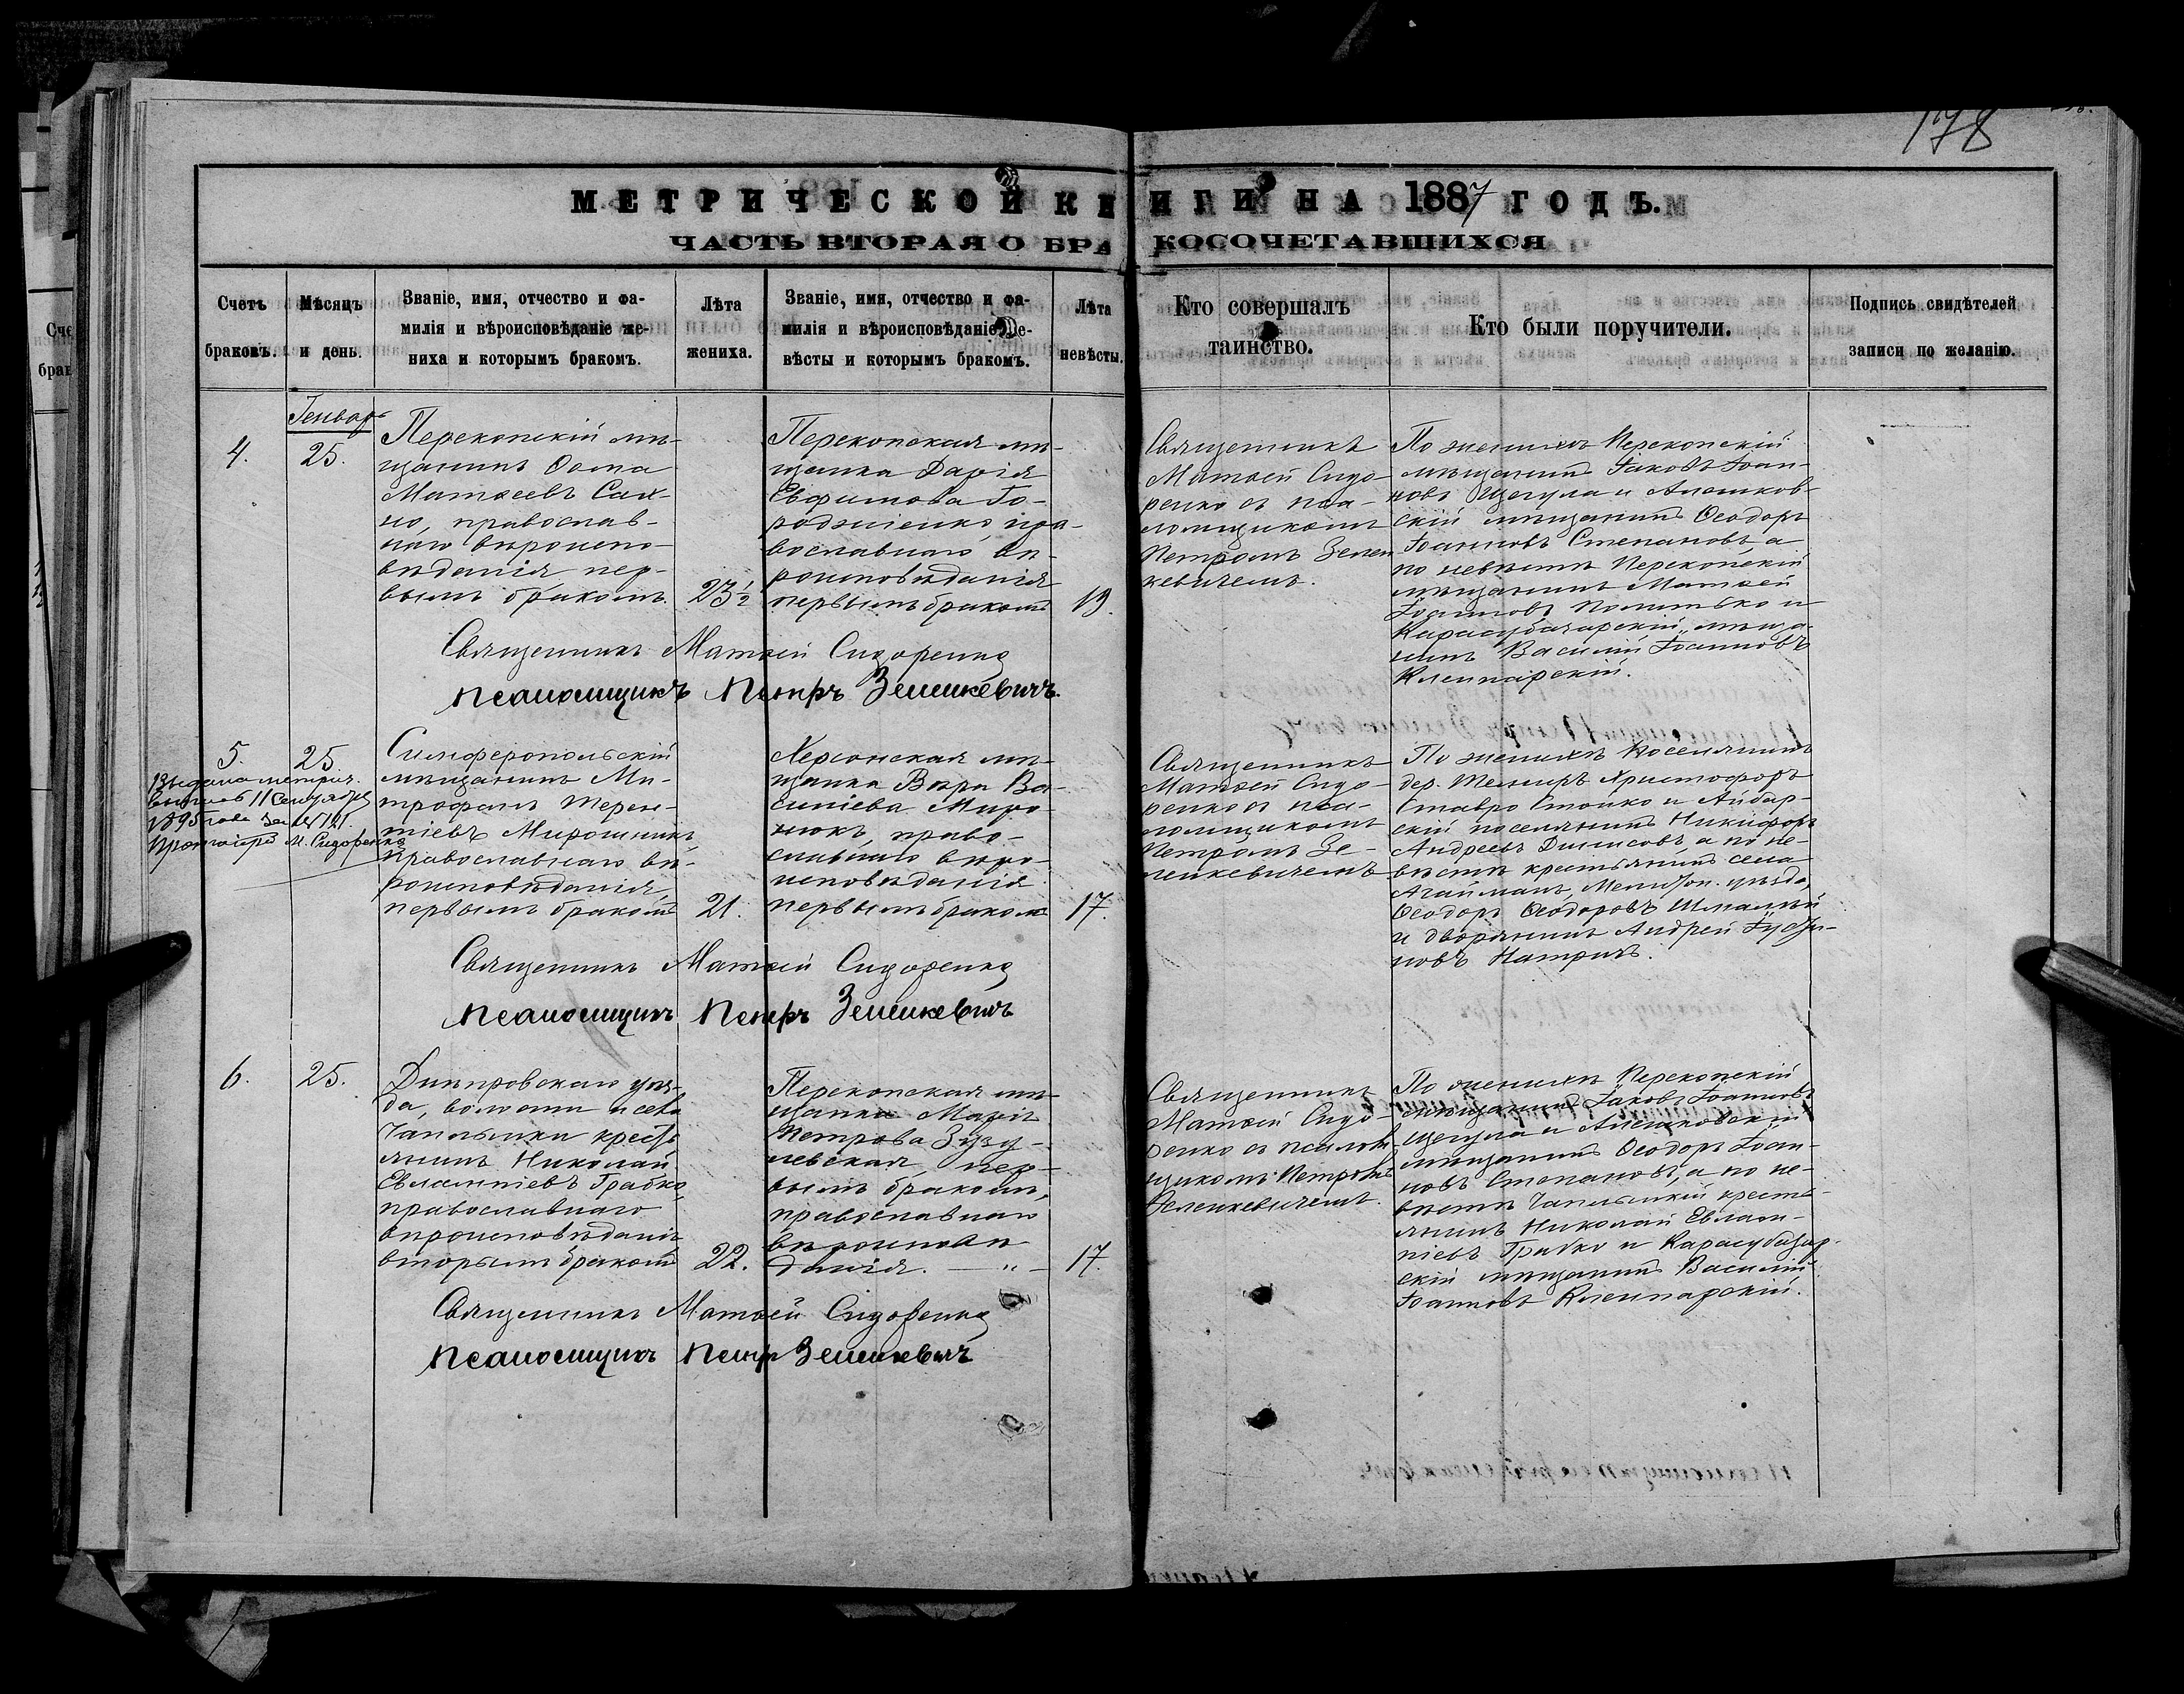 178
МЕТРИЧЕСКОЙ КНИГИ НА 1887 ГОДЪ.
ЧАСТЬ ВТОРАЯ О БРАКОСОЧЕТАВШИХСЯ
Счетъ
браковъ.
Мѣсяцъ
и день.
Званіе, имя, отчество и фа-
милія и вѣроисповѣданіе же-
ниха и которымъ бракомъ.
Лѣта
жениха.
Званіе, имя, отчество и фа-
милія и вѣроисповѣданіе не-
вѣсты и которымъ бракомъ.
Лѣта
невѣсты.
Кто совершалъ
таинство.
Кто были поручители.
Подпись свидѣтелей
записи по желанію.
Генварь
4.
25.
Перекопскій мѣ-
щанинъ Ѳома
Матѳеевъ Сах-
но, православ-
наго вѣроиспо-
вѣданія пер-
вымъ бракомъ.
23½
Перекопская мѣ-
щанка Дарія
Евфимова Го-
родніенко, пра-
вославнаго вѣ-
роисповѣданія
первымъ бракомъ
19.
Священникъ
Матѳей Сидо-
ренко съ пса-
ломщикомъ
Петромъ Зелен
кевичемъ.
По женихѣ Перекопскій
мѣщанинъ Іаковъ Іоан-
новъ Щегула и Алешков-
скій мѣщанинъ Ѳеодоръ
Іоанновъ Степановъ, а
по невѣстѣ Перекопскій
мѣщанинъ Матѳей
Іоанновъ Политько и
Карасубазарскій мѣща-
нинъ Василій Іоанновъ
Клепарскій.
Священникъ Матѳей Сидоренко
Псаломщикъ Петръ Зеленкевичъ.
5.
25
Выдана метрич.
выпись 11 Сентября
1895 года за № 121.
Протоіерей М. Сидоренко
Симферопольскій
мѣщанинъ Ми-
трофанъ Терен-
тіевъ Мирошникъ,
православнаго вѣ-
роисповѣданія,
первымъ бракомъ
21.
Херсонская мѣ-
щанка Вѣра Ва-
силіева Миро-
нюкъ, право-
славнаго вѣро-
исповѣданія
первымъ бракомъ
17.
Священникъ
Матѳей Сидо-
ренко съ пса-
ломщикомъ
Петромъ Зе-
ленкевичемъ
По женихѣ поселянинъ
дер. Темиръ Христофоръ
Ставро Стойко и Айбар-
скій поселянинъ Никифоръ
Андреевъ Динисовъ, а по не-
вѣстѣ крестьянинъ села
Агайманъ, Мелитоп. уѣзда,
Ѳеодоръ Ѳеодоровъ Шмалый
и дворянинъ Андрей Іусти-
новъ
Священникъ Матѳей Сидоренко
Псаломщикъ Петръ Зеленкевичъ
6.
25.
Днѣпровскаго уѣз-
да, волости и села
Чаплынки кресть
янинъ Николай
Евлампіевъ Грабко,
православнаго
вѣроисповѣданія
вторымъ бракомъ
22.
Перекопская мѣ-
щанка Марія
Петрова Зузу-
левская, пер-
вымъ бракомъ,
православнаго
вѣроисповѣ
данія. — „ —
17.
Священникъ
Матѳей Сидо-
ренко съ псалом
щикомъ Петромъ
Зеленкевичемъ.
По женихѣ Перекопскій
мѣщанинъ Іаковъ Іоанновъ
Щегула и Алешковскій
мѣщанинъ Ѳеодоръ Іоан-
новъ Степановъ, а по не-
вѣстѣ Чаплынскій кресть-
янинъ Николай Евлам-
піевъ Грабко и Карасубазар-
скій мѣщанинъ Василій
Іоанновъ Клепарскій.
Священникъ Матѳей Сидоренко
Псаломщикъ Петръ Зеленкевичъ